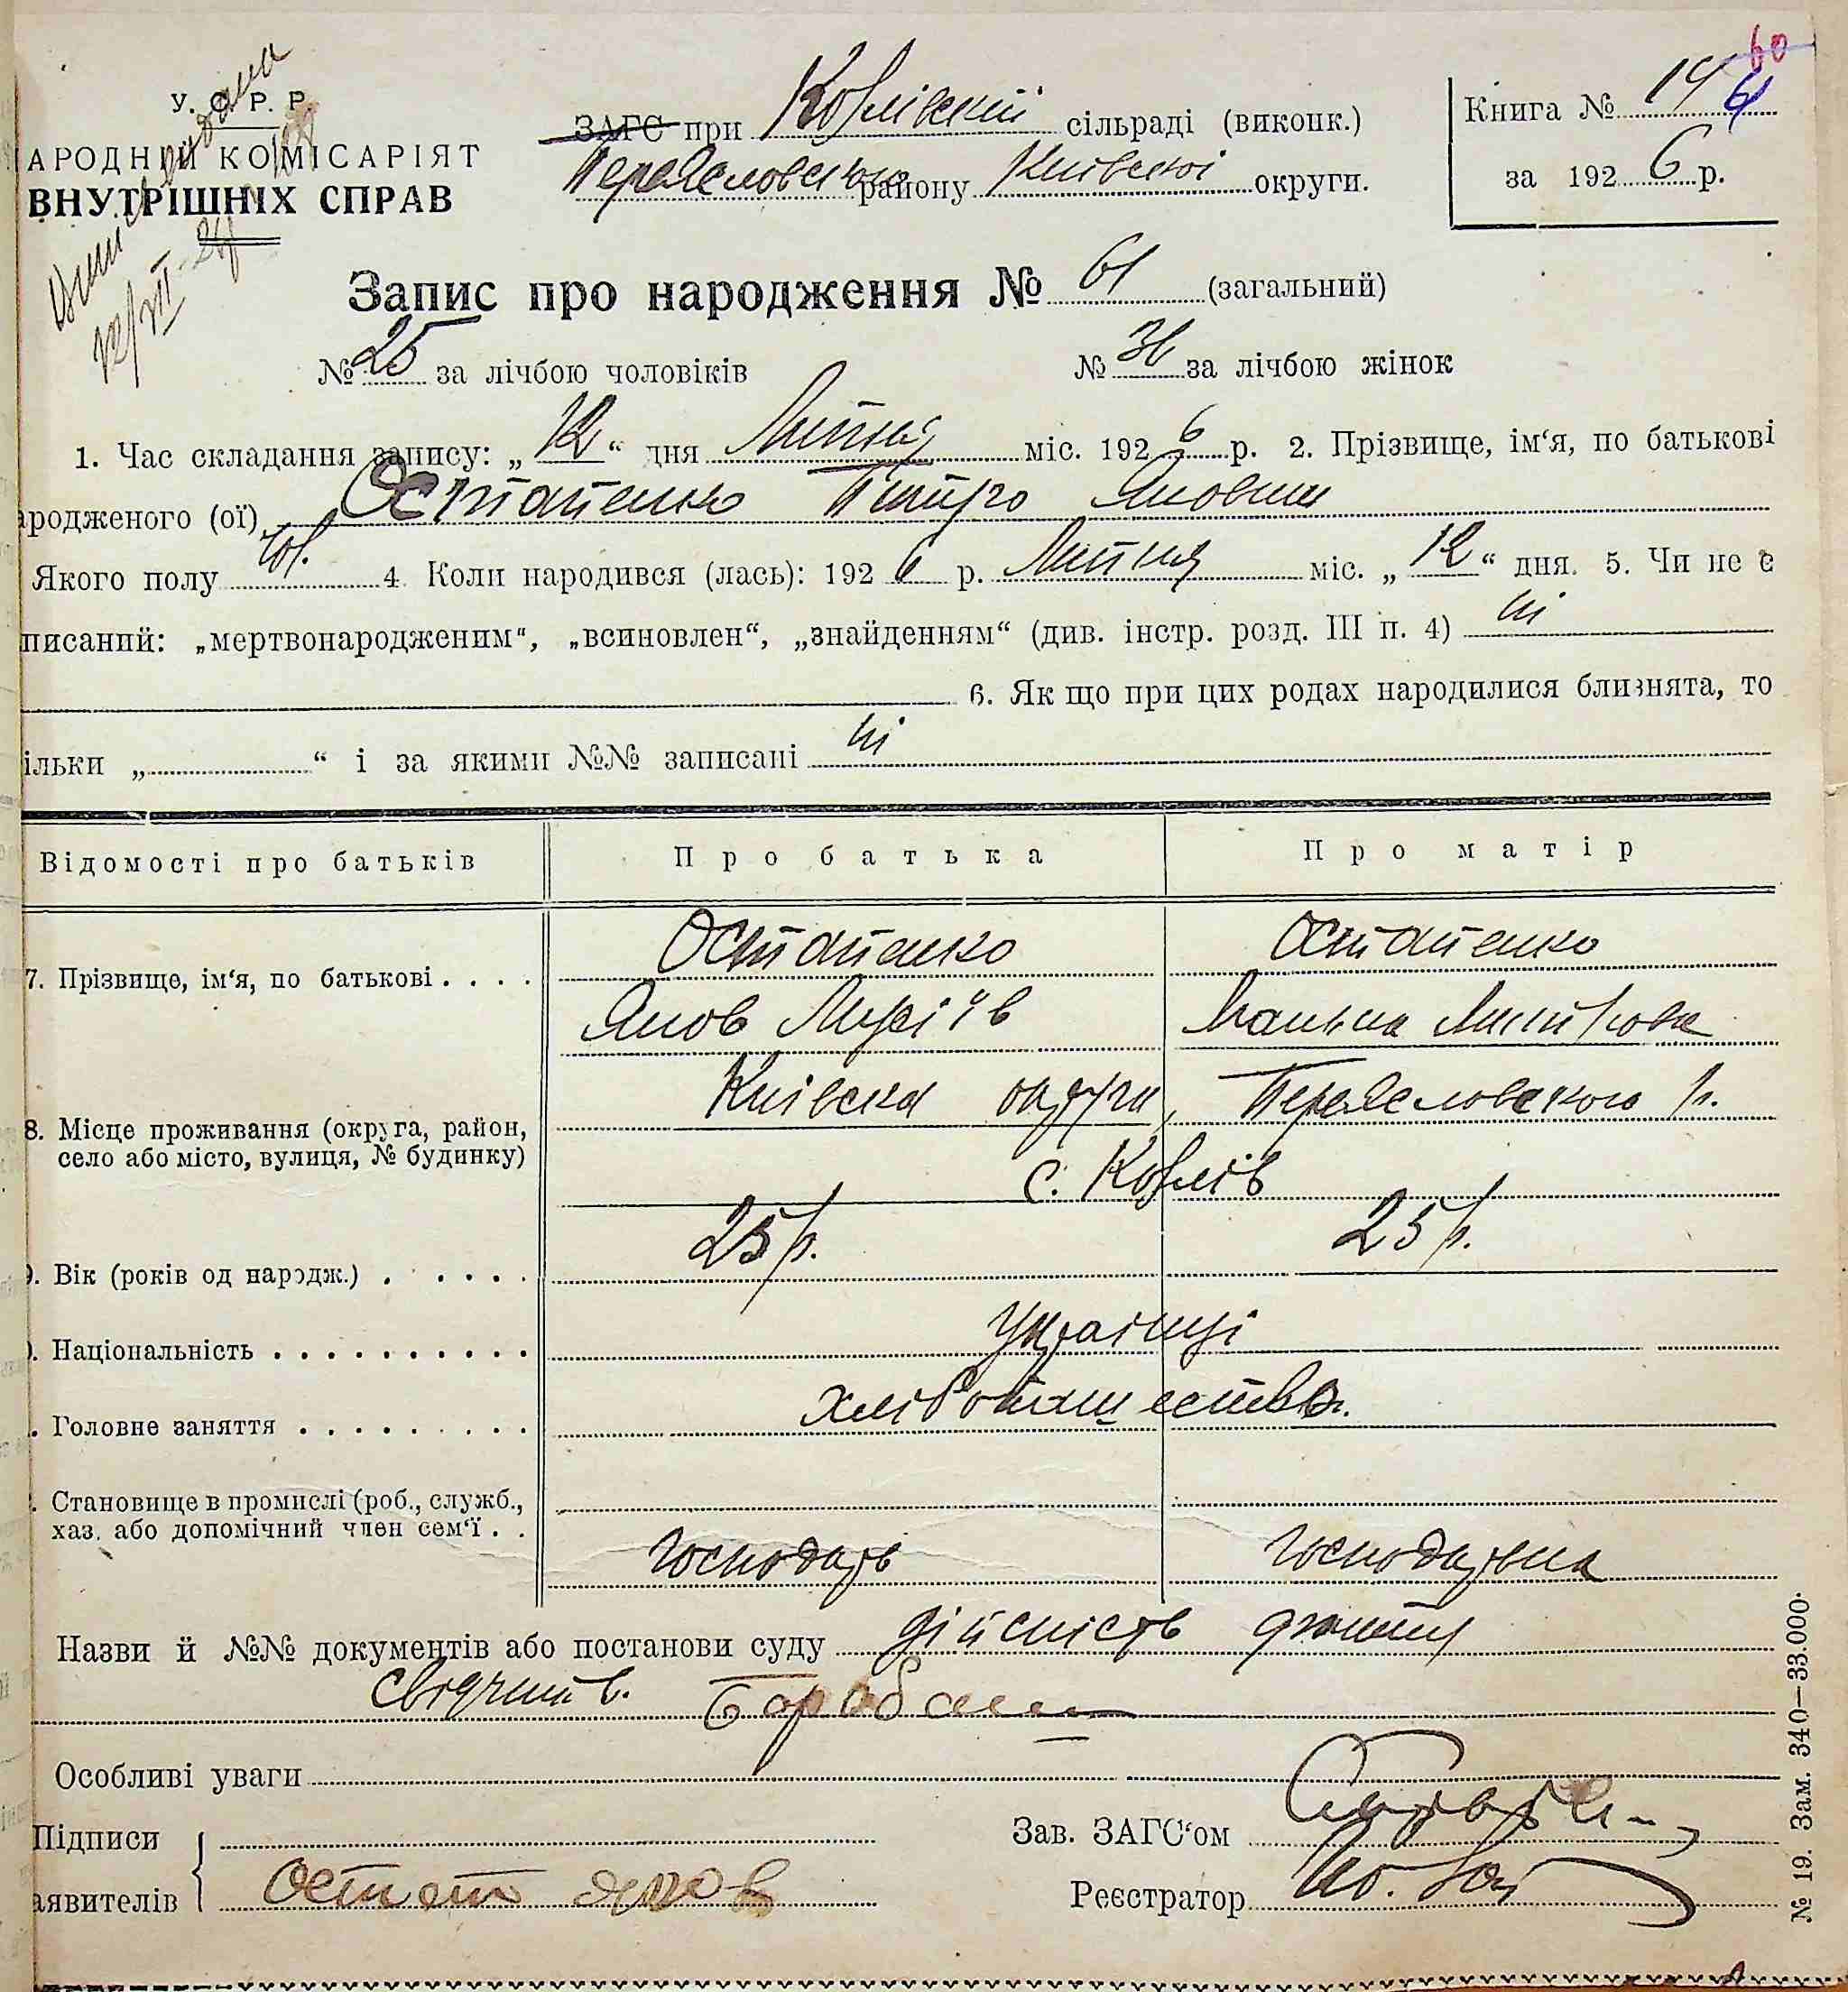 60
У. С. Р. Р.
АРОДНІЙ КОМІСАРІЯТ
ВНУТРІШНІХ СПРАВ
ЗАГС при Ковлівскій сільраді (виконк.)
Переяславського району Київської округи.
Книга № 14
за 1926 р.
Запис про народження № 61 (загальний)
№ 25 за лічбою чоловіків № 36 за лічбою жінок
1. Час складання запису: „12“ дня Липня міс. 1926 р. 2. Прізвище, ім‘я, по батькові
ародженого (ої) Остапенко Якович
Якого полу 4. Коли народився (лась): 1926 р. Липня міс. „12“ дня. 5. Чи не є
писаний: „мертвонародженим“, „всиновлен“, „знайденням“ (див. інстр. розд. III п. 4) ні
6. Як що при цих родах народилися близнята, то
ільки „ “ і за якими №№ записані ні
Відомості про батьків Про батька Про матір
7. Прізвище, ім‘я, по батькові . . . . Остапенко Остапенко
Яков Мусіїв
8. Місце проживання (округа, район, село або місто, вулиця, № будинку) Київска округи, Переясловского р.
с. Ковлів
. Вік (років од народж.) . . . . . . 25 р. 25 р.
. Національність . . . . . . . . . . Українці
. Головне заняття . . . . . . . . . хлібопашество.
. Становище в промислі (роб., служб.,
хаз. або допомічний член сем‘ї . . господарь господарька
Назви й №№ документів або постанови суду дійсність
свідчить.
Особливі уваги
Підписи
аявителів Остап Яков
Зав. ЗАГС‘ом
Реєстратор
№ 19. Зам. 340—33.000.